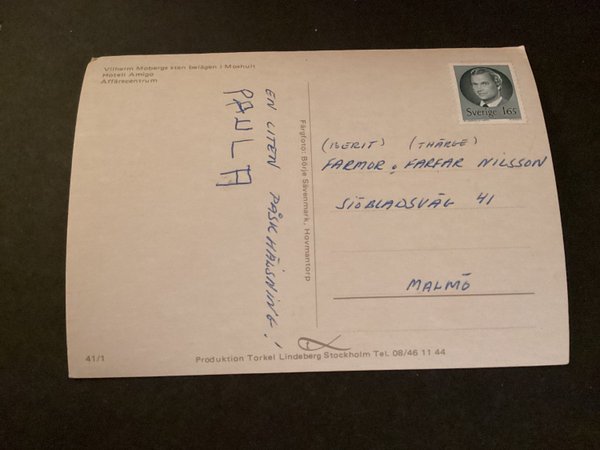 Vilhelm Mobergs sten belägen i Moshult
Hotell Amigo
Affärscentrum
EN LITEN PÅSKHÄLSNING!
PAULA
Färgfoto: Börje Sävenmark, Hovmantorp
Sverige 165
(BERIT) (THÄRGE)
FARMOR o FARFAR NILSSON
SJÖBLADSVÄG 41
MALMÖ
41/1
Produktion Torkel Lindeberg Stockholm Tel. 08/46 11 44